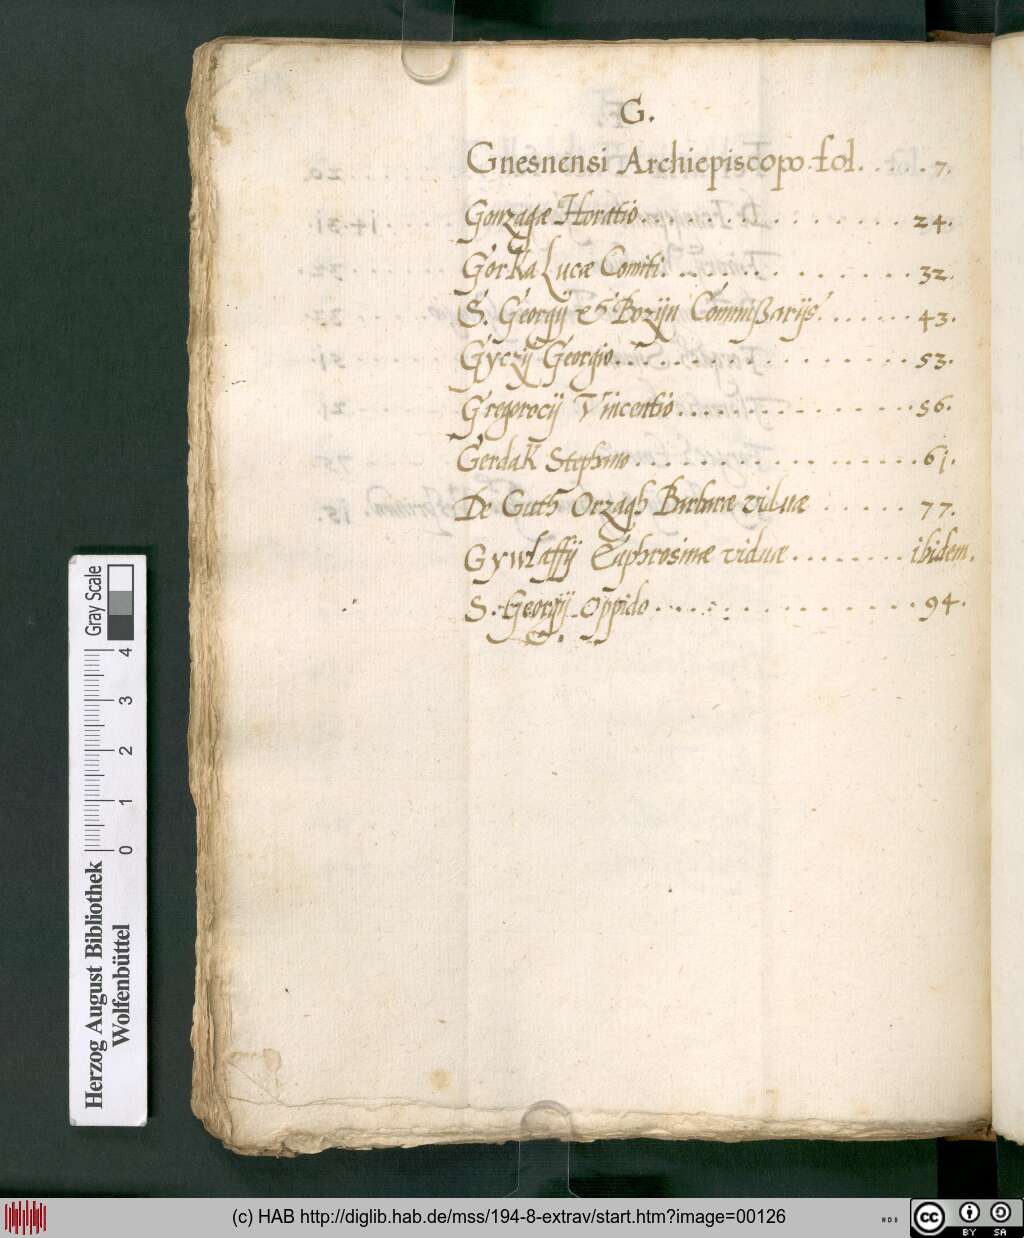 G.
Gnesnensi Archiepiscopo. fol. . . . . 7.
Gonzagæ Horatio. . . . . . . . . . . . . 24.
Gorka Lucæ Comiti. . . . . . . . . . . . 32.
S. Georgij et Bozijn Commißarijs. . . . . . . 43.
Gyczij Georgio. . . . . . . . . . . . . . . 53.
Gregorocij Vincentio. . . . . . . . . . . . 56.
Gerdak Stephano . . . . . . . . . . . . . 61.
De Guth Orzagh Barbaræ viduæ . . . . . . 77.
Gywlaffij Euphrosinæ viduæ. . . . . . . . ibidem.
S. Georgij Oppido. . . . . . . . . . . . . 94.
Gray Scale
4
3
2
1
0
Herzog August Bibliothek
Wolfenbüttel
(c) HAB http://diglib.hab.de/mss/194-8-extrav/start.htm?image=00126
WDB
cc
BY SA